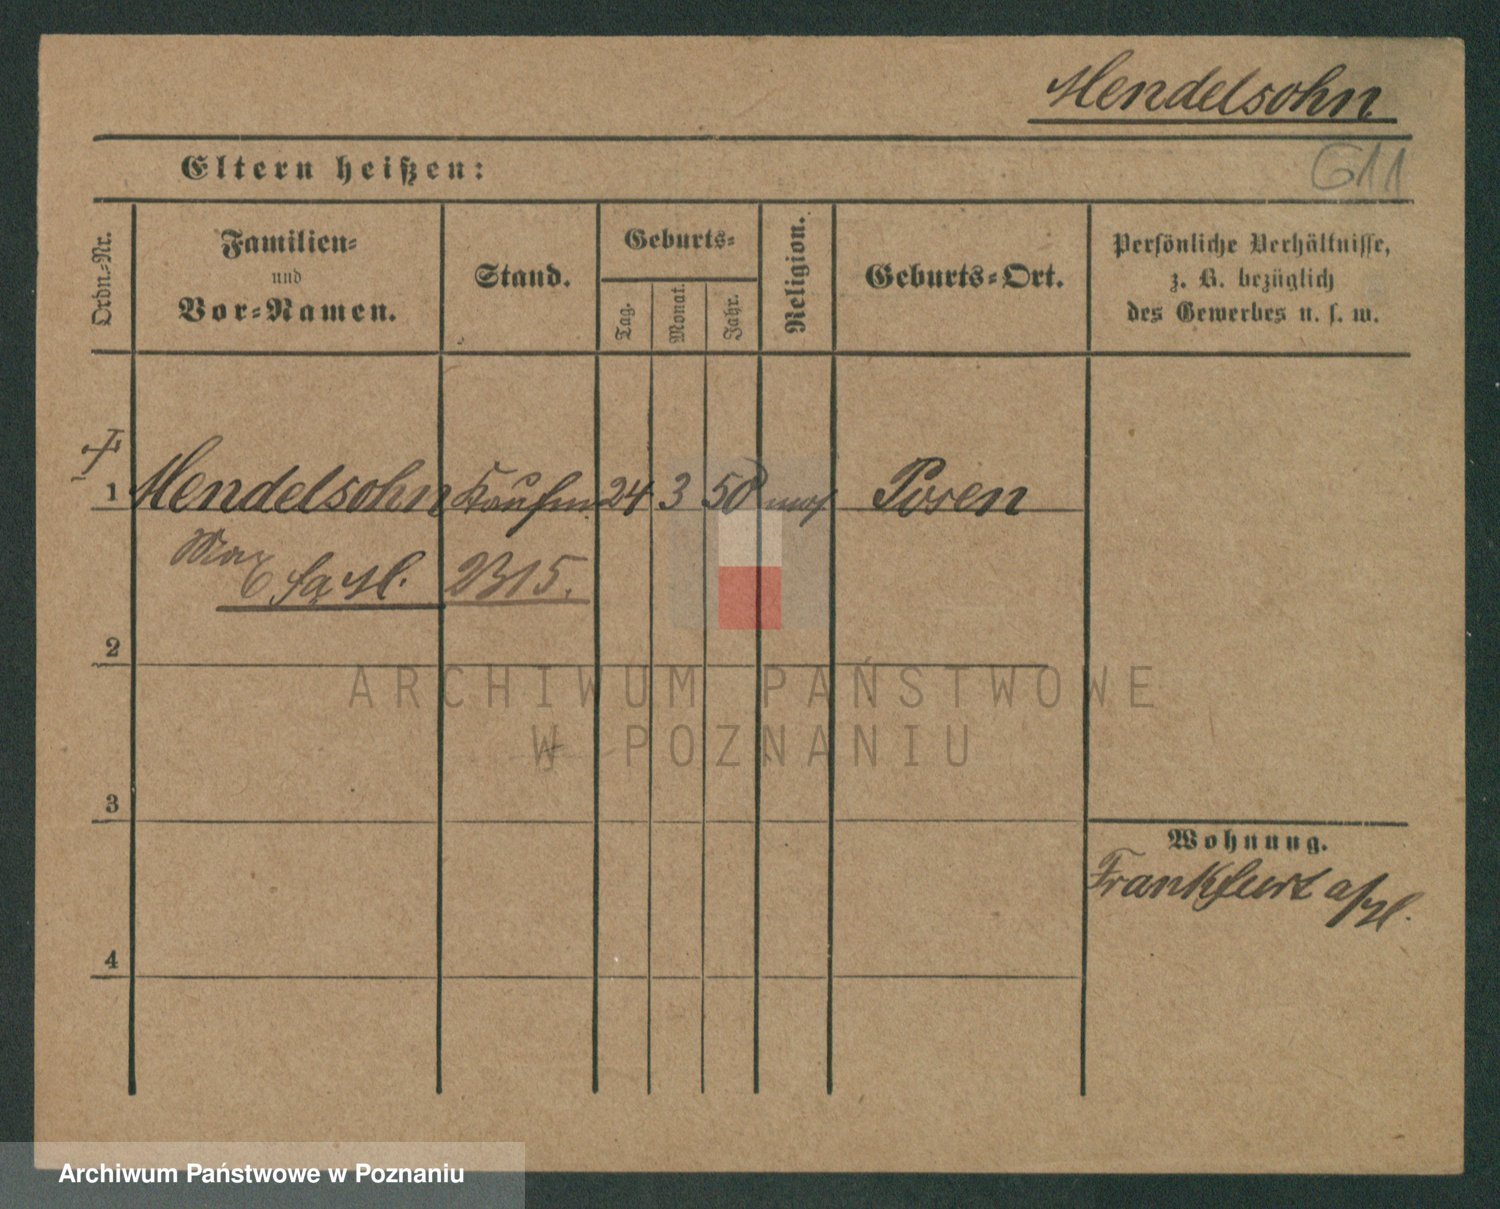 Mendelsohn.
Eltern heißen:
G11
Ordn.-Nr.
Familien-
und
Vor-Namen.
Stand.
Geburts-
Tag.
Monat.
Jahr.
Religion.
Geburts-Ort.
Persönliche Verhältnisse,
z. B. bezüglich
des Gewerbes u. s. w.
1 Mendelsohn Kaufm 24 3 50 mos Posen
Max
2315.
2
ARCHIWUM PAŃSTWOWE
W POZNANIU
3
Wohnung.
Frankfurt a/M.
4
Archiwum Państwowe w Poznaniu